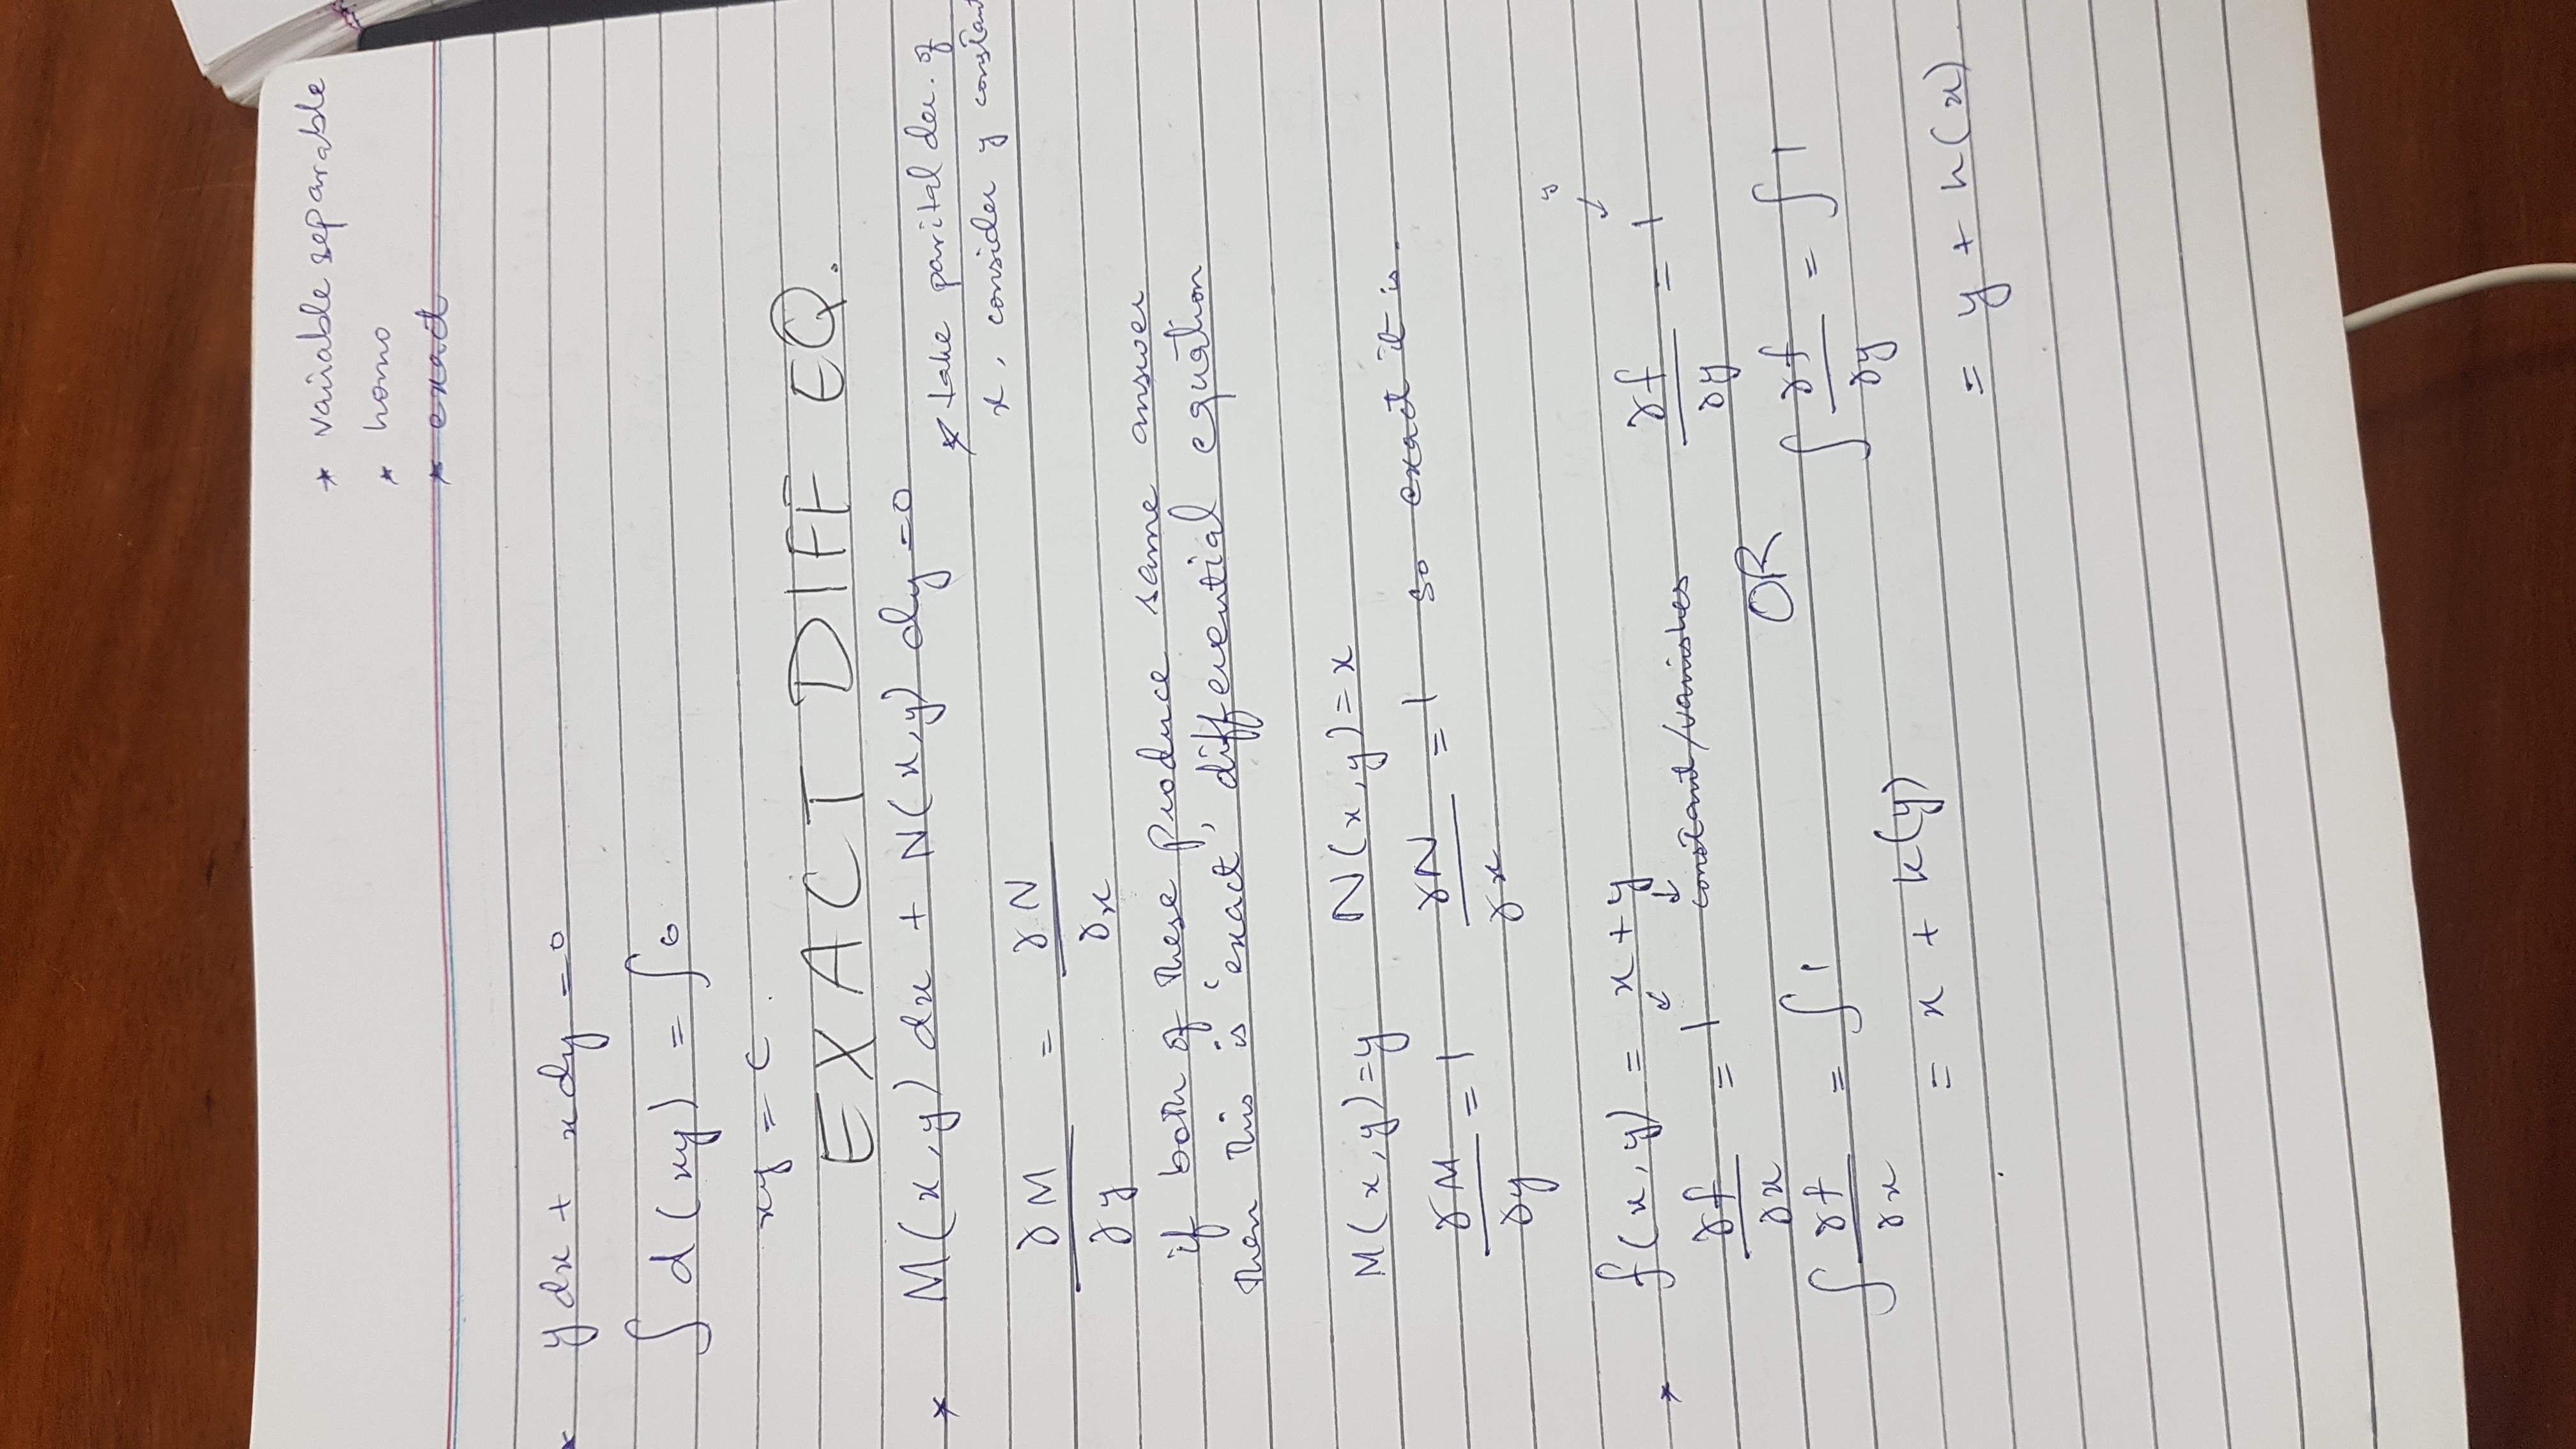 * variable separable
* homo
* exact
* y dx + x dy = 0
∫ d (xy) = ∫ 0
xy = c.
EXACT DIFF EQ.
* M(x,y) dx + N(x,y) dy = 0
* take parital der. of
x, consider y constant
∂M/∂y = ∂N/∂x
if both of these produce same answer
then this is 'exact' differential equation
M(x,y)=y N(x,y)=x
∂M/∂y = 1 ∂N/∂x = 1 so exact it is.
* f(x,y) = x + y
∂f/∂x = 1 constant/vanishes
y
∂f/∂y = 1
OR
∫ ∂f/∂x = ∫ 1
= x + k(y)
∫ ∂f/∂y = ∫ 1
= y + h(x)